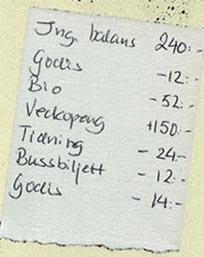 Ing. balans 240:-
Godis -12:-
Bio -52:-
Veckopeng +150:-
Tidning - 24:-
Bussbiljett - 12:-
Godis - 14:-